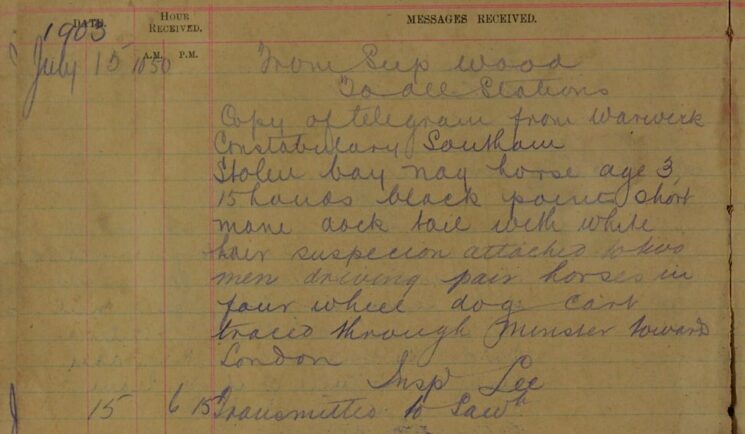 DATE.
HOUR RECEIVED.
MESSAGES RECEIVED.
1903
A.M. P.M.
July 15 10 50 From Sup Wood
To all Stations
Copy of telegram from Warwick
Constabulary Southam
Stolen bay nag horse age 3
15 hands black points short
mane dock tail with white
hair suspecion attached to two
men driving pair horses in
four wheel dog cart
traced through Minster toward
London
Insp Lee
J 15 6 15 Transmitted to Sawh